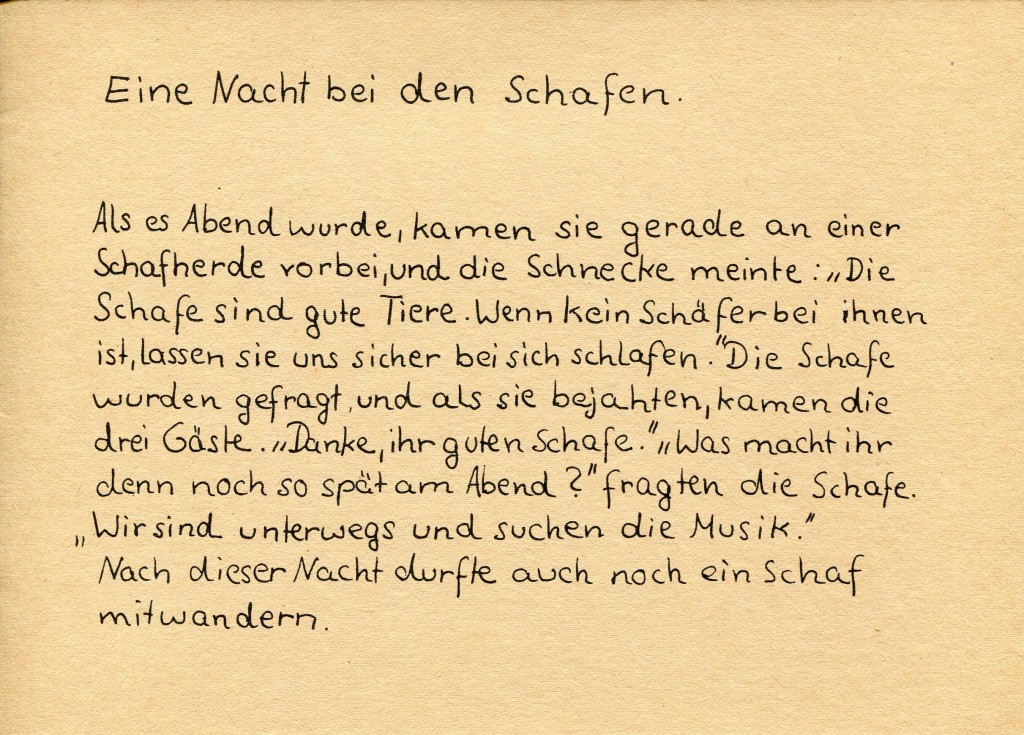 Eine Nacht bei den Schafen.
Als es Abend wurde, kamen sie gerade an einer
Schafherde vorbei, und die Schnecke meinte: „Die
Schafe sind gute Tiere. Wenn kein Schäfer bei ihnen
ist, lassen sie uns sicher bei sich schlafen." Die Schafe
wurden gefragt, und als sie bejahten, kamen die
drei Gäste. „Danke, ihr guten Schafe." „Was macht ihr
denn noch so spät am Abend?" fragten die Schafe.
„Wir sind unterwegs und suchen die Musik."
Nach dieser Nacht durfte auch noch ein Schaf
mitwandern.